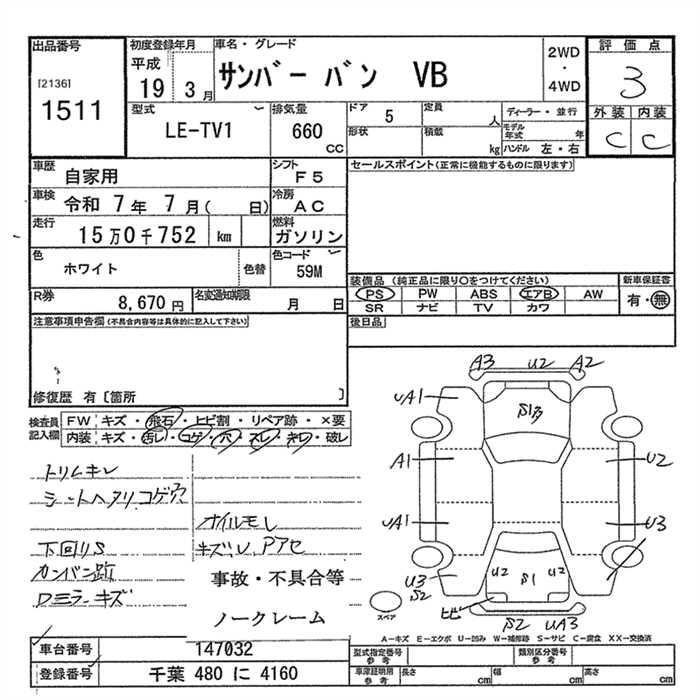 出品番号
[2136]
1511
初度登録年月
平成
19 3月
車名・グレード
サンバー バン VB
2WD
・
4WD
評価点
3
外装 内装
C C
型式
LE-TV1
排気量
660
CC
ドア
5
形状
定員
人
積載
kg
ディーラー・並行
モデル
年式
年
ハンドル 左・右
車歴
自家用
シフト
F5
車検
令和 7年 7月( 日)
冷房
AC
走行
15万0千752 km
燃料
ガソリン
色
ホワイト
色替
色コード
59M
R券
8,670円
名変通知期限
月 日
セールスポイント(正常に機能するものに限ります)
装備品 (純正品に限り○をつけてください)
PS PW ABS エアB AW
SR ナビ TV カワ
新車保証書
有・無
後日品
注意事項申告欄(不具合内容等は具体的に記入して下さい)
修復歴 有〔箇所 〕
検査員
記入欄
FW キズ・飛石・ヒビ割・リペア跡・×要
内装 キズ・汚レ・コゲ・穴・スレ・キレ・破レ
トリムキレ
シートヘタリコゲ穴
オイルモレ
下回りS
キズ,U,Pアセ
カンバン跡
Dミラーキズ
事故・不具合等
ノークレーム
A3 U2 A2
UA1
S1
A1
U2
UA1
U3
U3
S2
U2 S1 U2
ヒビ
S2 UA3
スペア
A−キズ E−エクボ U−凹み W−補修跡 S−サビ C−腐食 XX−交換済
車台番号
147032
登録番号
千葉 480 に 4160
型式指定番号
参考
類別区分番号
参考
車庫証明用
参考
長さ
cm
幅
cm
高さ
cm